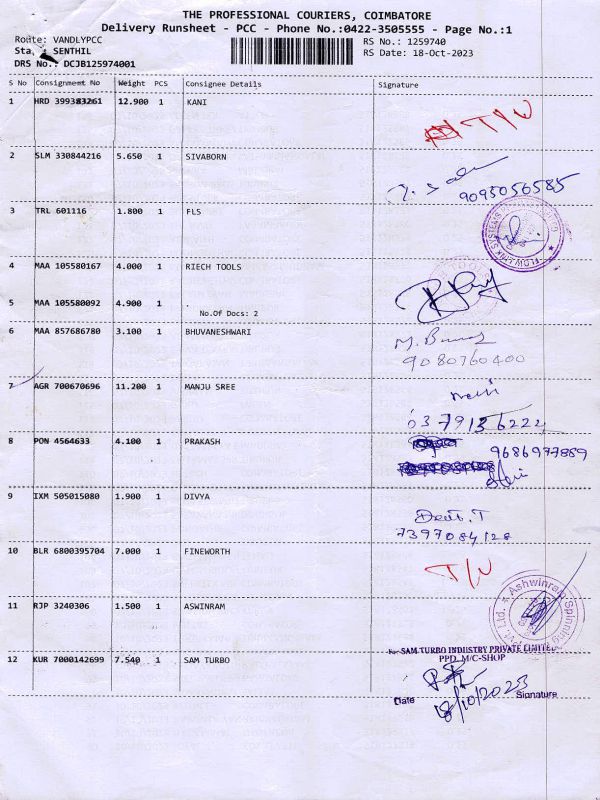 THE PROFESSIONAL COURIERS, COIMBATORE
Delivery Runsheet - PCC - Phone No.:0422-3505555 - Page No.:1
Route: VANDLYPCC RS No.: 1259740
SENTHIL RS Date: 18-Oct-2023
DRS No.: DCJB125974001
S No Consignment No Weight PCS Consignee Details Signature
1 HRD 399383261 12.900 1 KANI
T/W
2 SLM 330844216 5.650 1 SIVABORN
9095056585
3 TRL 601116 1.800 1 FLS
4 MAA 105580167 4.000 1 RIECH TOOLS
5 MAA 105580092 4.900 1 .
No.Of Docs: 2
6 MAA 857686780 3.100 1 BHUVANESHWARI
9080760400
7 AGR 700670696 11.200 1 MANJU SREE
8 PON 4564633 4.100 1 PRAKASH
9686977869
9 IXM 505015080 1.900 1 DIVYA
7397084128
10 BLR 6800395704 7.000 1 FINEWORTH
T/W
11 RJP 3240306 1.500 1 ASWINRAM
Ashwinram Spinning
Pvt. Ltd.
For SAM TURBO INDUSTRY PRIVATE LIMITED
PPD. M/C-SHOP
12 KUR 7000142699 7.540 1 SAM TURBO
Date 18/10/2023 Signature